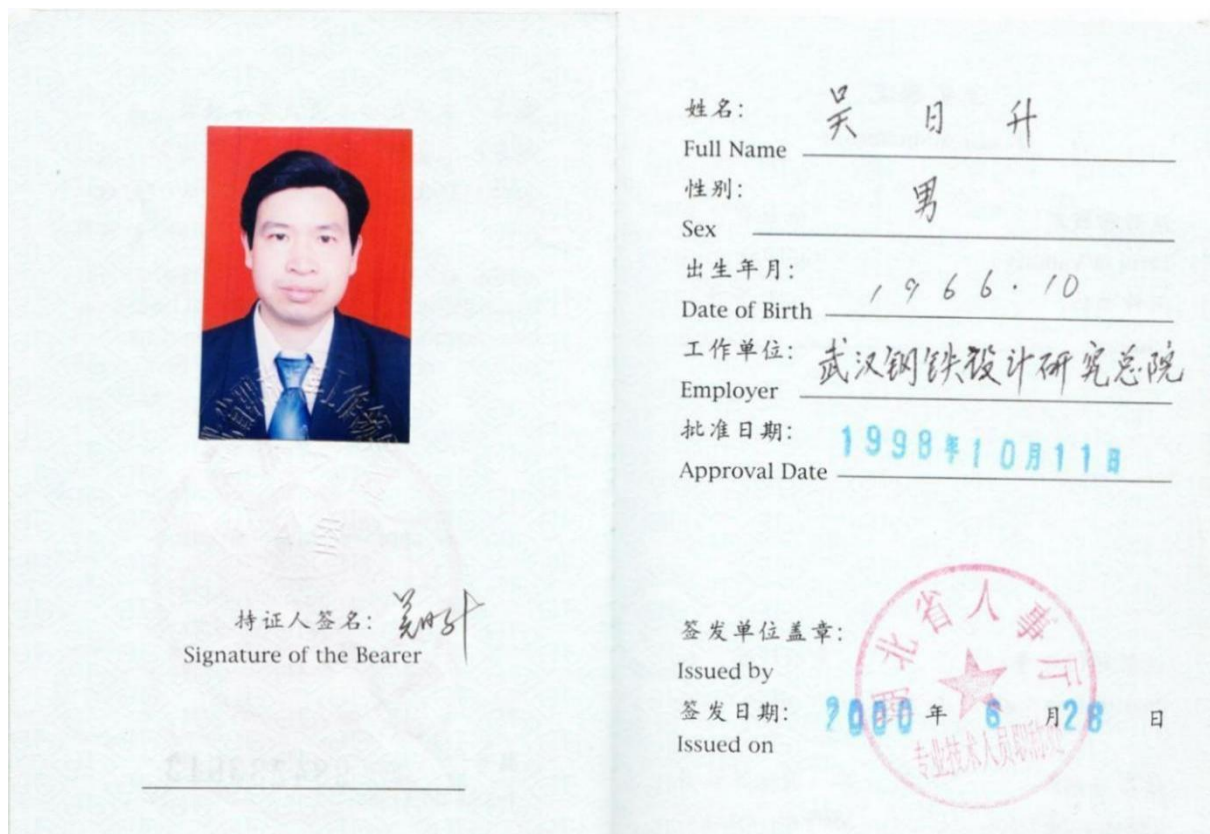 持证人签名:
Signature of the Bearer
姓名: 吴日升
Full Name
性别: 男
Sex
出生年月: 1966.10
Date of Birth
工作单位: 武汉钢铁设计研究总院
Employer
批准日期: 1998年10月11日
Approval Date
签发单位盖章:
Issued by
湖北省人事厅
专业技术人员职称
签发日期: 2000年6月28日
Issued on